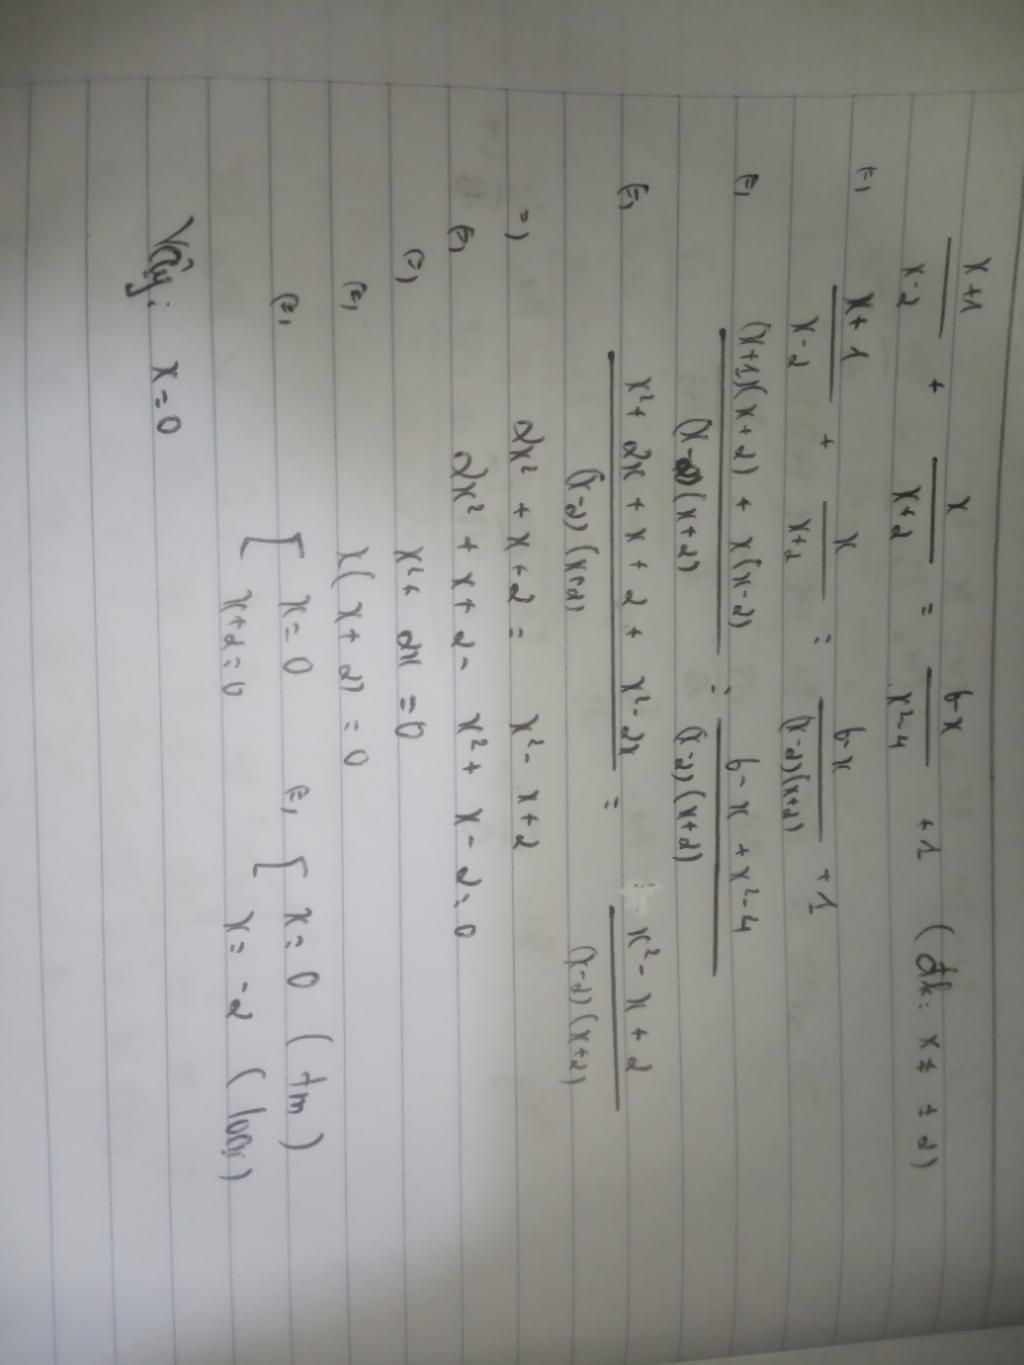 x+1/x-2 + x/x+2 = 6-x/x²-4 +1 (đk: x ≠ ±2)
(=) x+1/x-2 + x/x+2 = 6-x/(x-2)(x+2) +1
(=) (x+1)(x+2) + x(x-2)/(x-2)(x+2) = 6-x+x²-4/(x-2)(x+2)
(=) x²+2x+x+2+x²-2x/(x-2)(x+2) = x²-x+2/(x-2)(x+2)
=) 2x²+x+2 = x²-x+2
(=) 2x²+x+2-x²+x-2=0
(=) x²+2x=0
(=) x(x+2)=0
(=) [ x=0 (=) [ x=0 (tm)
x+2=0 x=-2 (loại)
Vậy: x=0